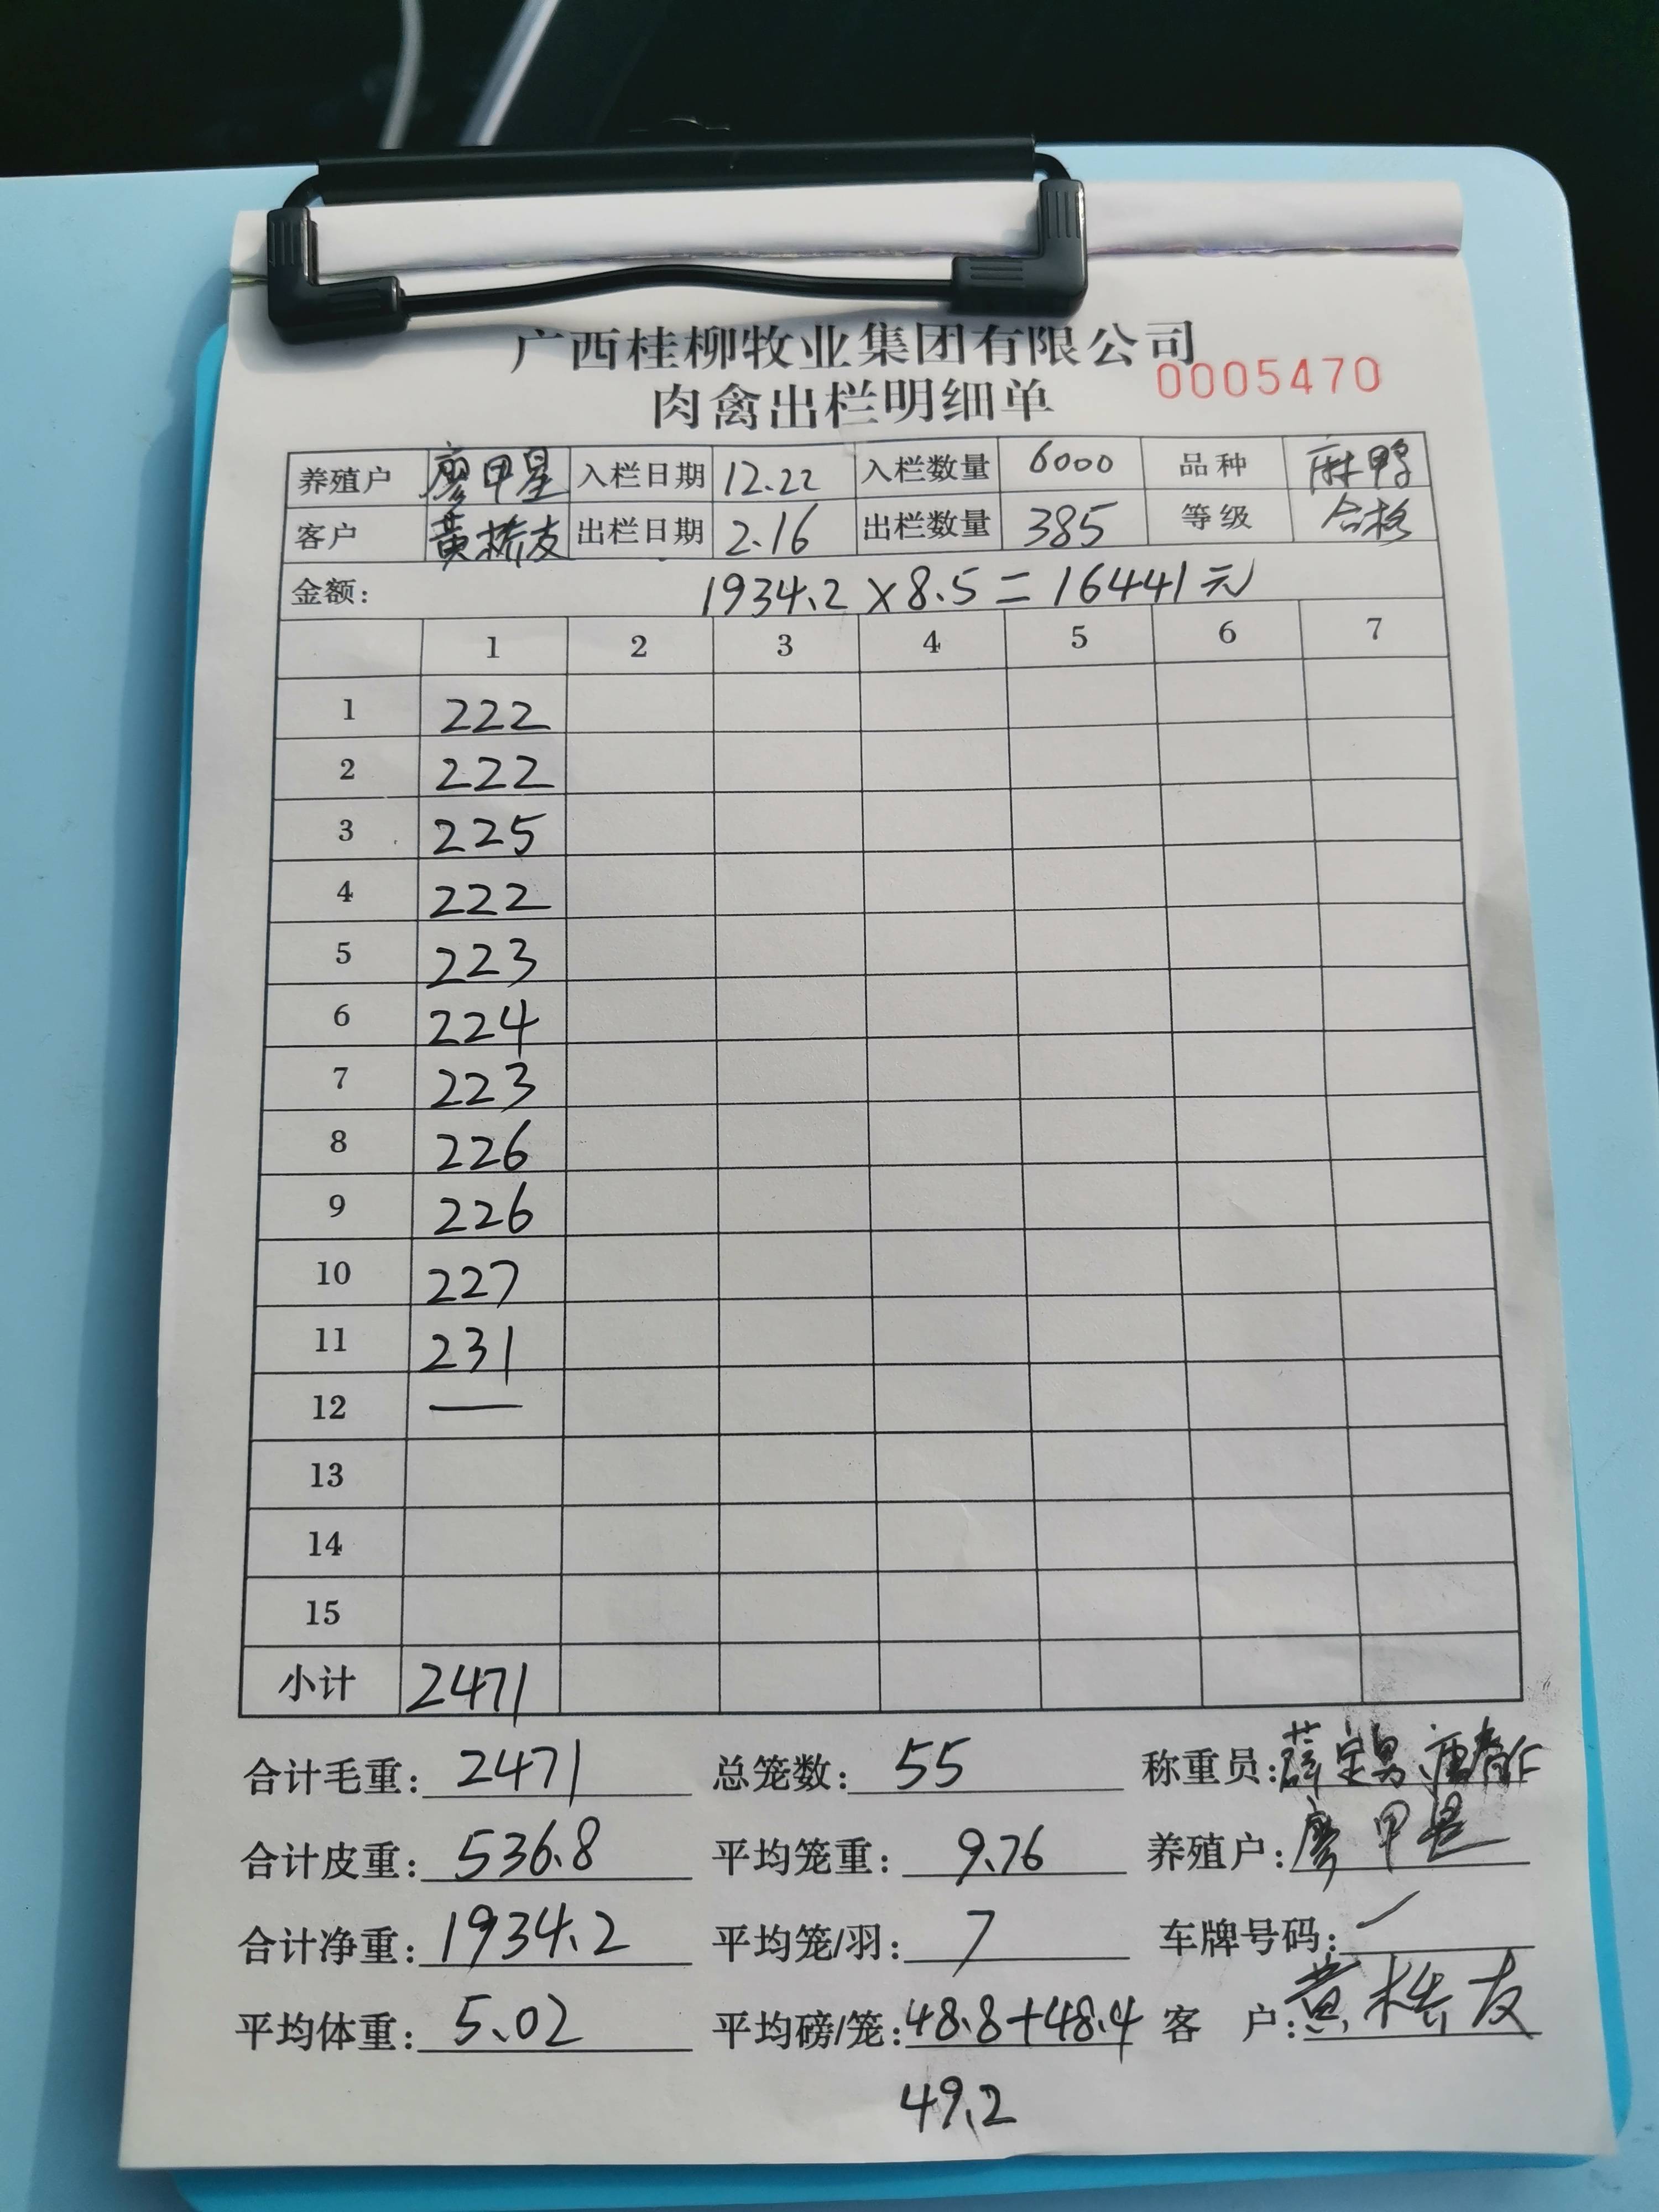 广西桂柳牧业集团有限公司
0005470
肉禽出栏明细单
养殖户 廖甲星 入栏日期 12.22 入栏数量 6000 品种 麻鸭
客户 黄桥友 出栏日期 2.16 出栏数量 385 等级 合格
金额: 1934.2×8.5=16441元
1 2 3 4 5 6 7
1 222
2 222
3 225
4 222
5 223
6 224
7 223
8 226
9 226
10 227
11 231
12 —
13
14
15
小计 2471
合计毛重: 2471 总笼数: 55 称重员:
合计皮重: 536.8 平均笼重: 9.76 养殖户: 廖甲星
合计净重: 1934.2 平均笼/羽: 7 车牌号码: 一
平均体重: 5.02 平均磅/笼: 48.8+48.4 客 户: 黄桥友
49.2